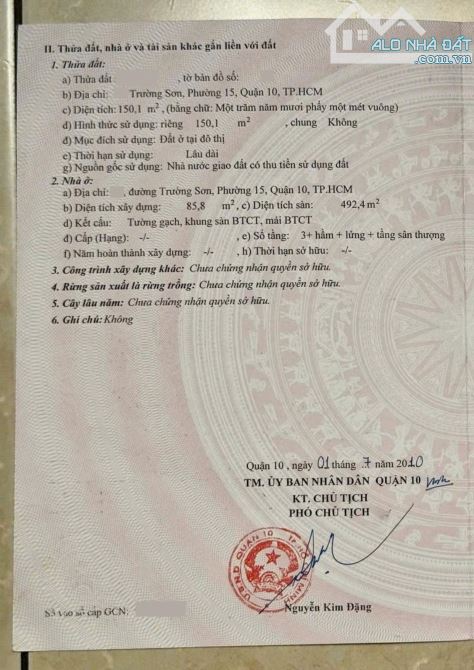 ALO NHÀ ĐẤT
.com.vn
II. Thửa đất, nhà ở và tài sản khác gắn liền với đất
1. Thửa đất:
a) Thửa đất , tờ bản đồ số:
b) Địa chỉ: Trường Sơn, Phường 15, Quận 10, TP.HCM
c) Diện tích: 150,1 m², (bằng chữ: Một trăm năm mươi phẩy một mét vuông)
d) Hình thức sử dụng: riêng 150,1 m², chung Không
đ) Mục đích sử dụng: Đất ở tại đô thị
e) Thời hạn sử dụng: Lâu dài
g) Nguồn gốc sử dụng: Nhà nước giao đất có thu tiền sử dụng đất
2. Nhà ở:
a) Địa chỉ: , đường Trường Sơn, Phường 15, Quận 10, TP.HCM
b) Diện tích xây dựng: 85,8 m², c) Diện tích sàn: 492,4 m²
d) Kết cấu: Tường gạch, khung sàn BTCT, mái BTCT
đ) Cấp (Hạng): -/- , e) Số tầng: 3+ hầm + lửng + tầng sân thượng
f) Năm hoàn thành xây dựng: -/- , h) Thời hạn sở hữu: -/-
3. Công trình xây dựng khác: Chưa chứng nhận quyền sở hữu.
4. Rừng sản xuất là rừng trồng: Chưa chứng nhận quyền sở hữu.
5. Cây lâu năm: Chưa chứng nhận quyền sở hữu.
6. Ghi chú: Không
Quận 10, ngày 01 tháng 7 năm 2010
TM. ỦY BAN NHÂN DÂN QUẬN 10
KT. CHỦ TỊCH
PHÓ CHỦ TỊCH
UBND QUẬN 10 TP. HỒ CHÍ MINH
Nguyễn Kim Đặng
Số vào sổ cấp GCN: